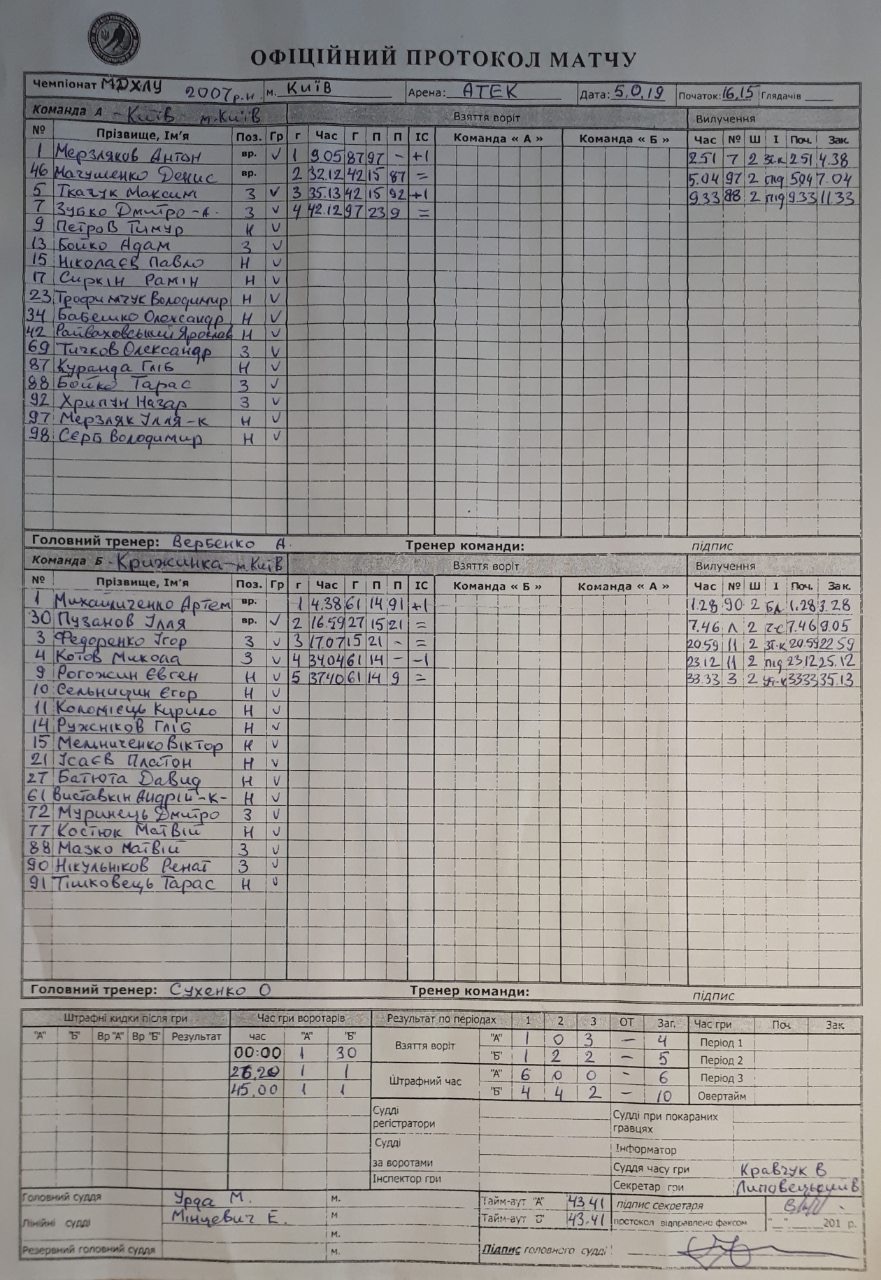 ОФІЦІЙНИЙ ПРОТОКОЛ МАТЧУ
Чемпіонат МДХЛУ 2007р.н м. Київ Арена: АТЕК Дата: 5.0.19 Початок: 16,15 Глядачів
Команда А - Київ м.Київ Взяття воріт Вилучення
№ Прізвище, Ім'я Поз. Гр г Час Г П П ІС Команда « А » Команда « Б » Час № Ш І Поч. Зак.
1 Мерзляков Антон вр. V 1 9.05 87 97 - +1 2.51 7 2 зг.к 2.51 4.38
46 Матушенко Денис вр. 2 32.12 42 15 87 = 5.04 97 2 5.04 7.04
5 Ткачук Максим З V 3 35.13 42 15 92 +1 9.33 88 2 під 9.33 11.33
7 Зубко Дмитро -А. З V 4 42.12 97 23 9 =
9 Петров Тимур Н V
13 Бойко Адам З V
15 Ніколаєв Павло Н V
17 Сиркін Рамін Н V
23 Трофимчук Володимир Н V
34 Бабешко Олександр Н V
42 Райваховський Ярослав Н V
69 Тичков Олександр З V
87 Куранда Гліб Н V
88 Бойко Тарас З V
92 Хрипун Назар З V
97 Мерзляк Ілля -к Н V
98 Серб Володимир Н V
Головний тренер: Вербенко А. Тренер команди: підпис
Команда Б - Крижинка - м.Київ Взяття воріт Вилучення
№ Прізвище, Ім'я Поз. Гр г Час Г П П ІС Команда « Б » Команда « А » Час № Ш І Поч. Зак.
1 Михайличенко Артем вр. 1 4.38 61 14 91 +1 1.28 90 2 бл 1.28 3.28
30 Пузанов Ілля вр. V 2 16.59 27 15 21 = 7.46 Л 2 7.46 9.05
3 Федоренко Ігор З V 3 17.07 15 21 - = 20.59 11 2 зг-к 20.59 22.59
4 Котов Микола З V 4 34.04 61 14 - -1 23.12 11 2 під 23.12 25.12
9 Рогожин Євген Н V 5 37.40 61 14 9 = 33.33 3 2 33.33 35.13
10 Сельницин Єгор Н V
11 Коломієць Кирило Н V
14 Ружніков Гліб Н V
15 Мельниченко Віктор Н V
21 Ісаєв Платон Н V
27 Батюта Давид Н V
61 Виставкін Андрій -К- Н V
72 Муринець Дмитро З V
77 Костюк Матвій Н V
88 Мазко Матвій З V
90 Нікульніков Ренат З V
91 Тішковець Тарас Н V
Головний тренер: Сухенко О Тренер команди: підпис
Штрафні кидки після гри Час гри воротарів Результат по періодах 1 2 3 ОТ Заг. Час гри Поч. Зак.
"А" "Б" Вр "А" Вр "Б" Результат час "А" "Б" Взяття воріт "А" 1 0 3 - 4 Період 1
00:00 1 30 "Б" 1 2 2 - 5 Період 2
26,20 1 1 Штрафний час "А" 6 0 0 - 6 Період 3
45,00 1 1 "Б" 4 4 2 - 10 Овертайм
Судді регістратори Судді при покараних гравцях
Судді за воротами Інформатор
Суддя часу гри Кравчук В
Інспектор гри Секретар гри Липовецький В
Головний суддя Урда М. м. Тайм-аут "А" 43.41 підпис секретаря
Лінійні судді Мінцевич Е. м Тайм-аут "Б" 43.41 протокол відправлено факсом "__"______201 р.
м.
Резервний головний суддя м. Підпис головного судді